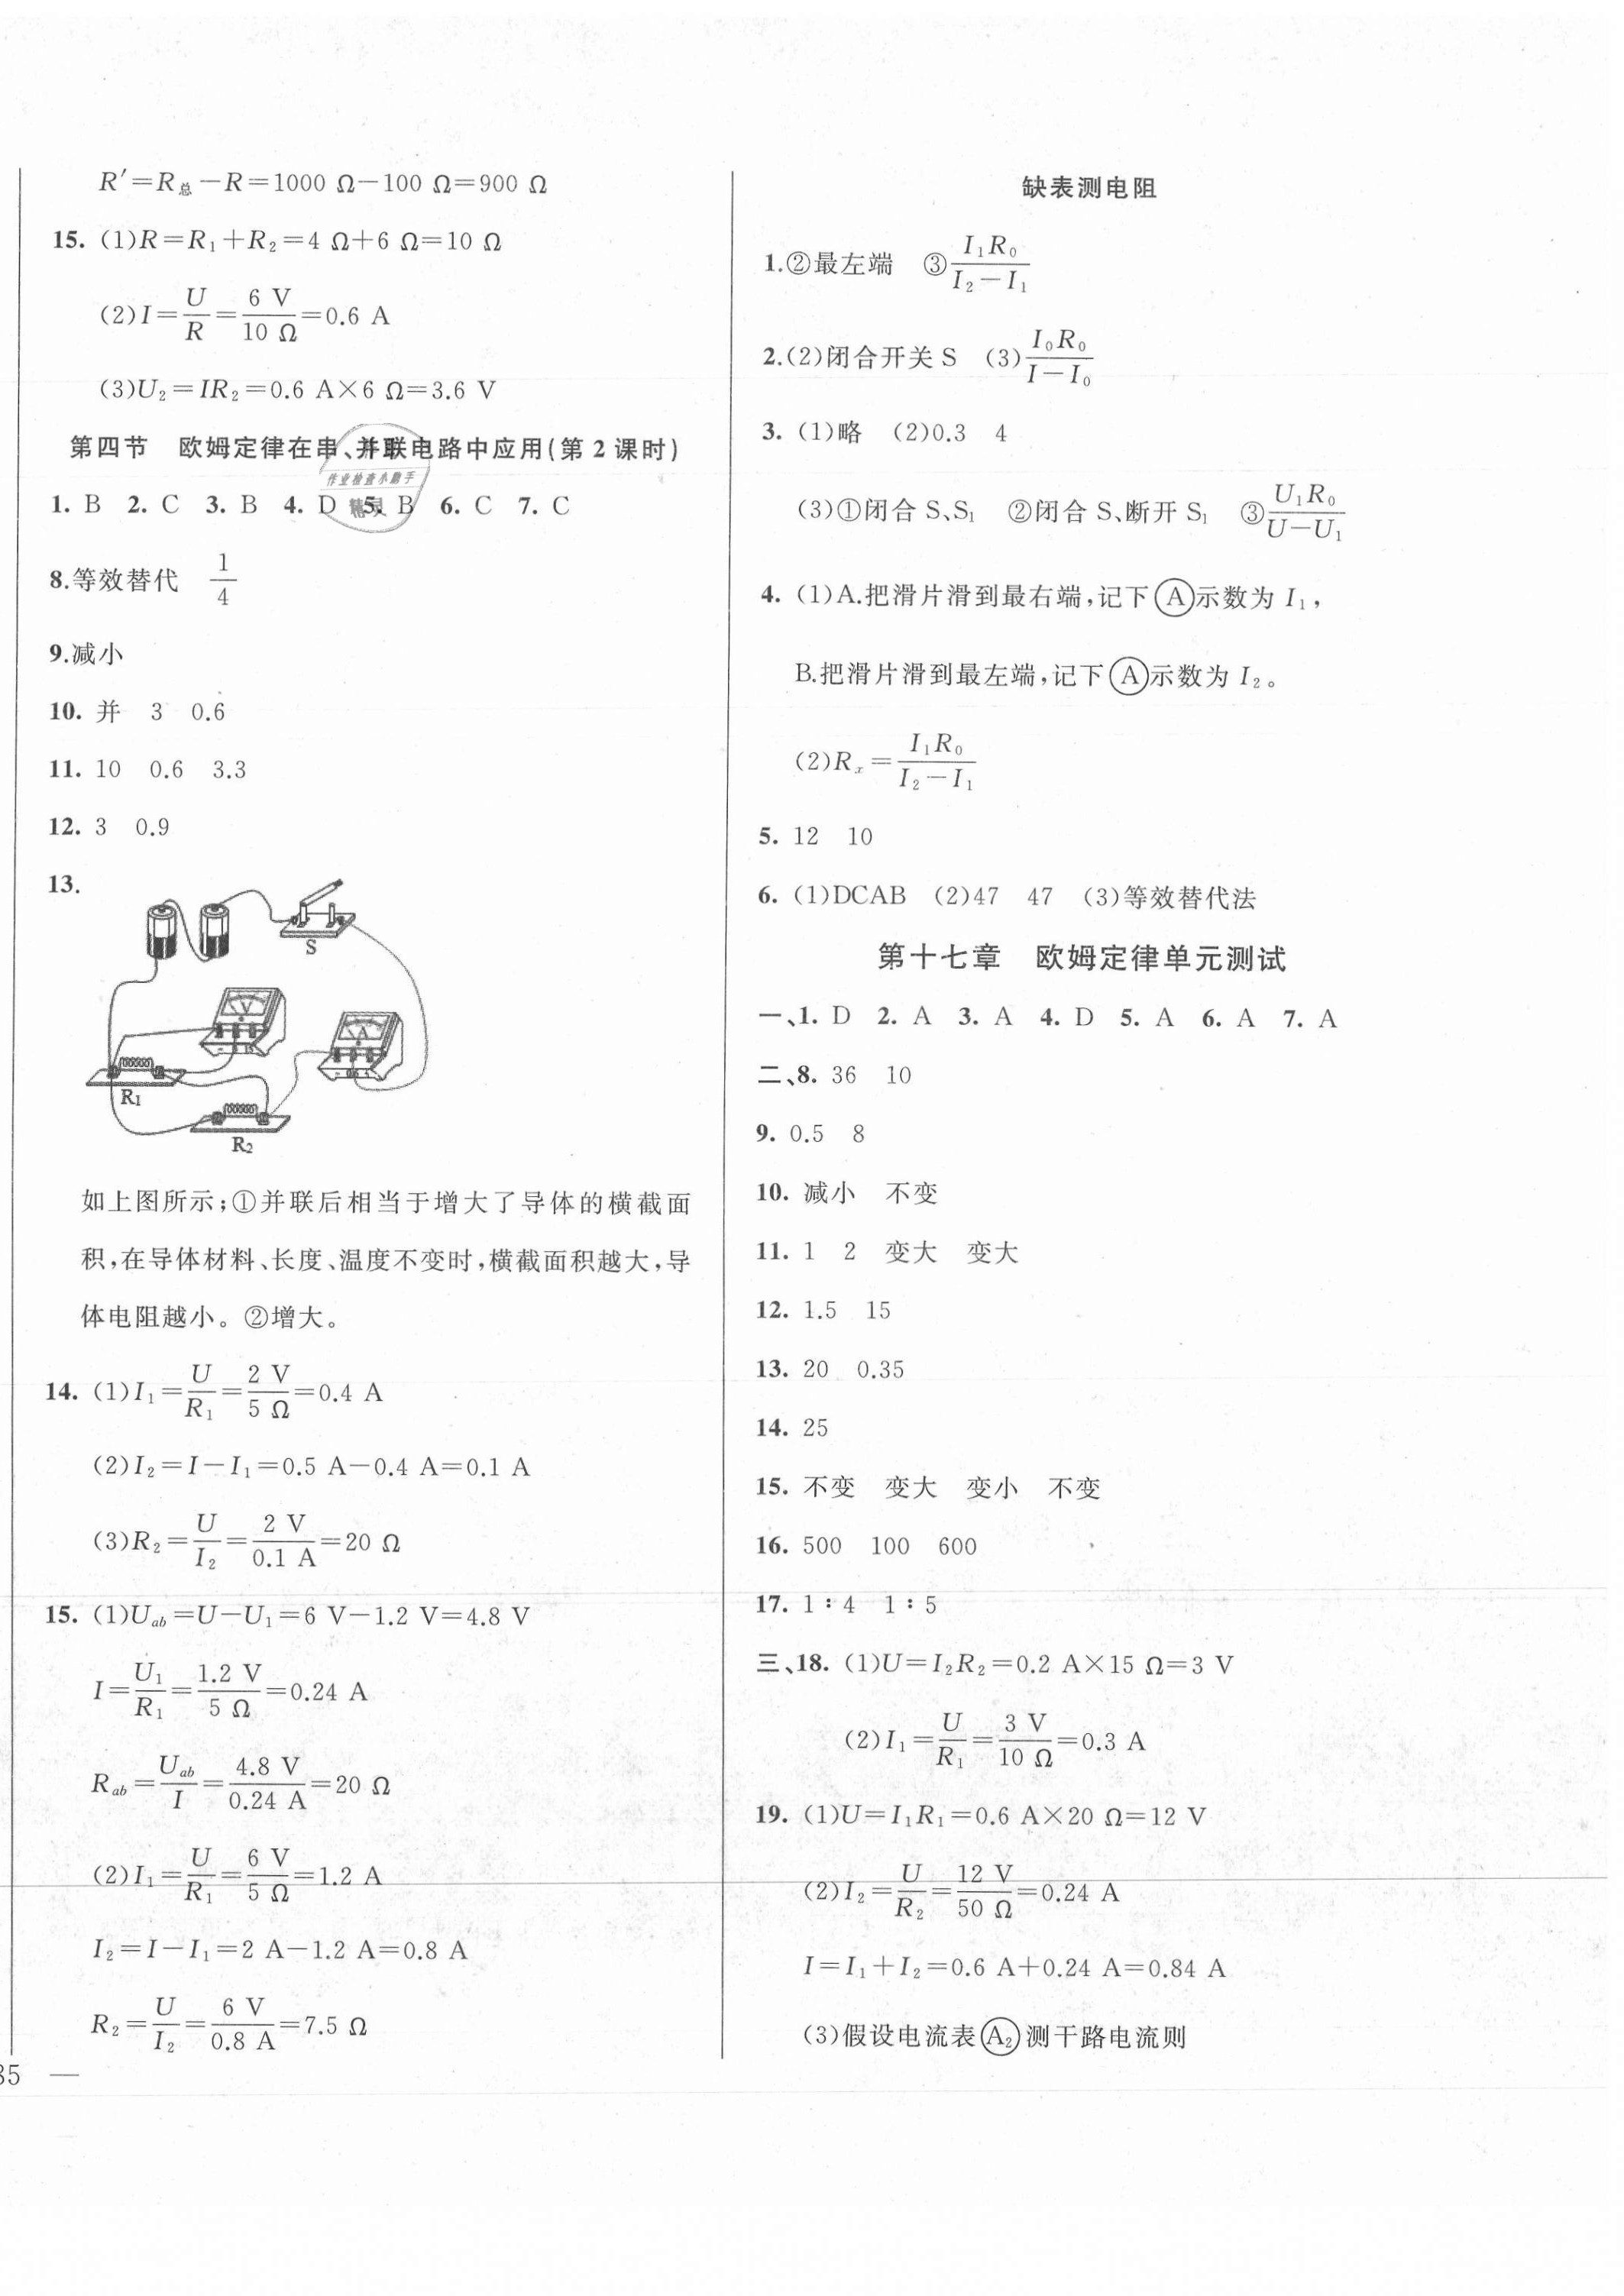 R′=R总-R=1000 Ω-100 Ω=900 Ω
15. (1)R=R₁+R₂=4 Ω+6 Ω=10 Ω
(2)I=U/R=6 V/10 Ω=0.6 A
(3)U₂=IR₂=0.6 A×6 Ω=3.6 V
第四节 欧姆定律在串、并联电路中应用(第 2 课时)
作业检查小助手
1. B 2. C 3. B 4. D 5. B 6. C 7. C
8.等效替代 1/4
9.减小
10. 并 3 0.6
11. 10 0.6 3.3
12. 3 0.9
13.
S
V
A
R₁
R₂
如上图所示;①并联后相当于增大了导体的横截面
积,在导体材料、长度、温度不变时,横截面积越大,导
体电阻越小。②增大。
14. (1)I₁=U/R₁=2 V/5 Ω=0.4 A
(2)I₂=I-I₁=0.5 A-0.4 A=0.1 A
(3)R₂=U/I₂=2 V/0.1 A=20 Ω
15. (1)Uab=U-U₁=6 V-1.2 V=4.8 V
I=U₁/R₁=1.2 V/5 Ω=0.24 A
Rab=Uab/I=4.8 V/0.24 A=20 Ω
(2)I₁=U/R₁=6 V/5 Ω=1.2 A
I₂=I-I₁=2 A-1.2 A=0.8 A
R₂=U/I₂=6 V/0.8 A=7.5 Ω
35 —
缺表测电阻
1.②最左端 ③I₁R₀/(I₂-I₁)
2.(2)闭合开关 S (3)I₀R₀/(I-I₀)
3. (1)略 (2)0.3 4
(3)①闭合 S、S₁ ②闭合 S、断开 S₁ ③U₁R₀/(U-U₁)
4. (1)A.把滑片滑到最右端,记下Ⓐ示数为 I₁,
B.把滑片滑到最左端,记下Ⓐ示数为 I₂。
(2)Rₓ=I₁R₀/(I₂-I₁)
5. 12 10
6. (1)DCAB (2)47 47 (3)等效替代法
第十七章 欧姆定律单元测试
一、1. D 2. A 3. A 4. D 5. A 6. A 7. A
二、8. 36 10
9. 0.5 8
10. 减小 不变
11. 1 2 变大 变大
12. 1.5 15
13. 20 0.35
14. 25
15. 不变 变大 变小 不变
16. 500 100 600
17. 1∶4 1∶5
三、18. (1)U=I₂R₂=0.2 A×15 Ω=3 V
(2)I₁=U/R₁=3 V/10 Ω=0.3 A
19. (1)U=I₁R₁=0.6 A×20 Ω=12 V
(2)I₂=U/R₂=12 V/50 Ω=0.24 A
I=I₁+I₂=0.6 A+0.24 A=0.84 A
(3)假设电流表(A₂)测干路电流则